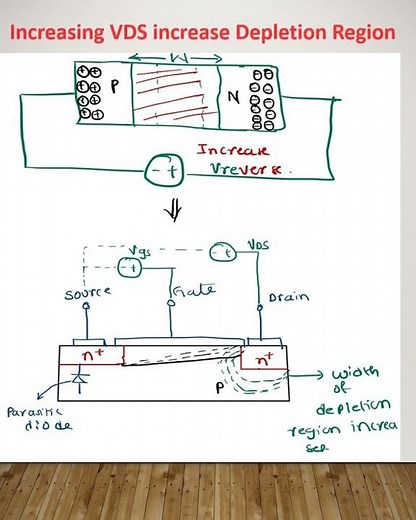 Increasing VDS increase Depletion Region
W
P
N
- +
Increase
Vreverse.
Vgs
- +
VDS
- +
Source
Gate
Drain
n+
n+
P
Parasitic
diode
width
of
depletion
region increa
ses.